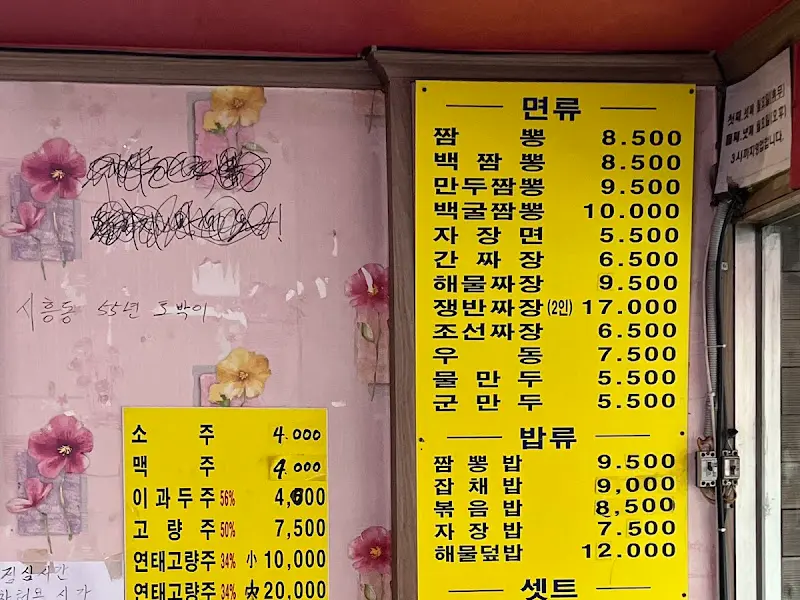 시흥동 55년 토박이
소 주 4.000
맥 주 4.000
이과두주 56% 4,000
고 량 주 50% 7,500
연태고량주 34% 小 10,000
연태고량주 34% 大 20,000
면류
짬 뽕 8.500
백 짬 뽕 8.500
만두짬뽕 9.500
백굴짬뽕 10.000
자 장 면 5.500
간 짜 장 6.500
해물짜장 9.500
쟁반짜장(2인) 17.000
조선짜장 6.500
우 동 7.500
물 만 두 5.500
군 만 두 5.500
밥류
짬 뽕 밥 9.500
잡 채 밥 9,000
볶 음 밥 8,500
자 장 밥 7.500
해물덮밥 12.000
셋트
3시까지영업합니다.